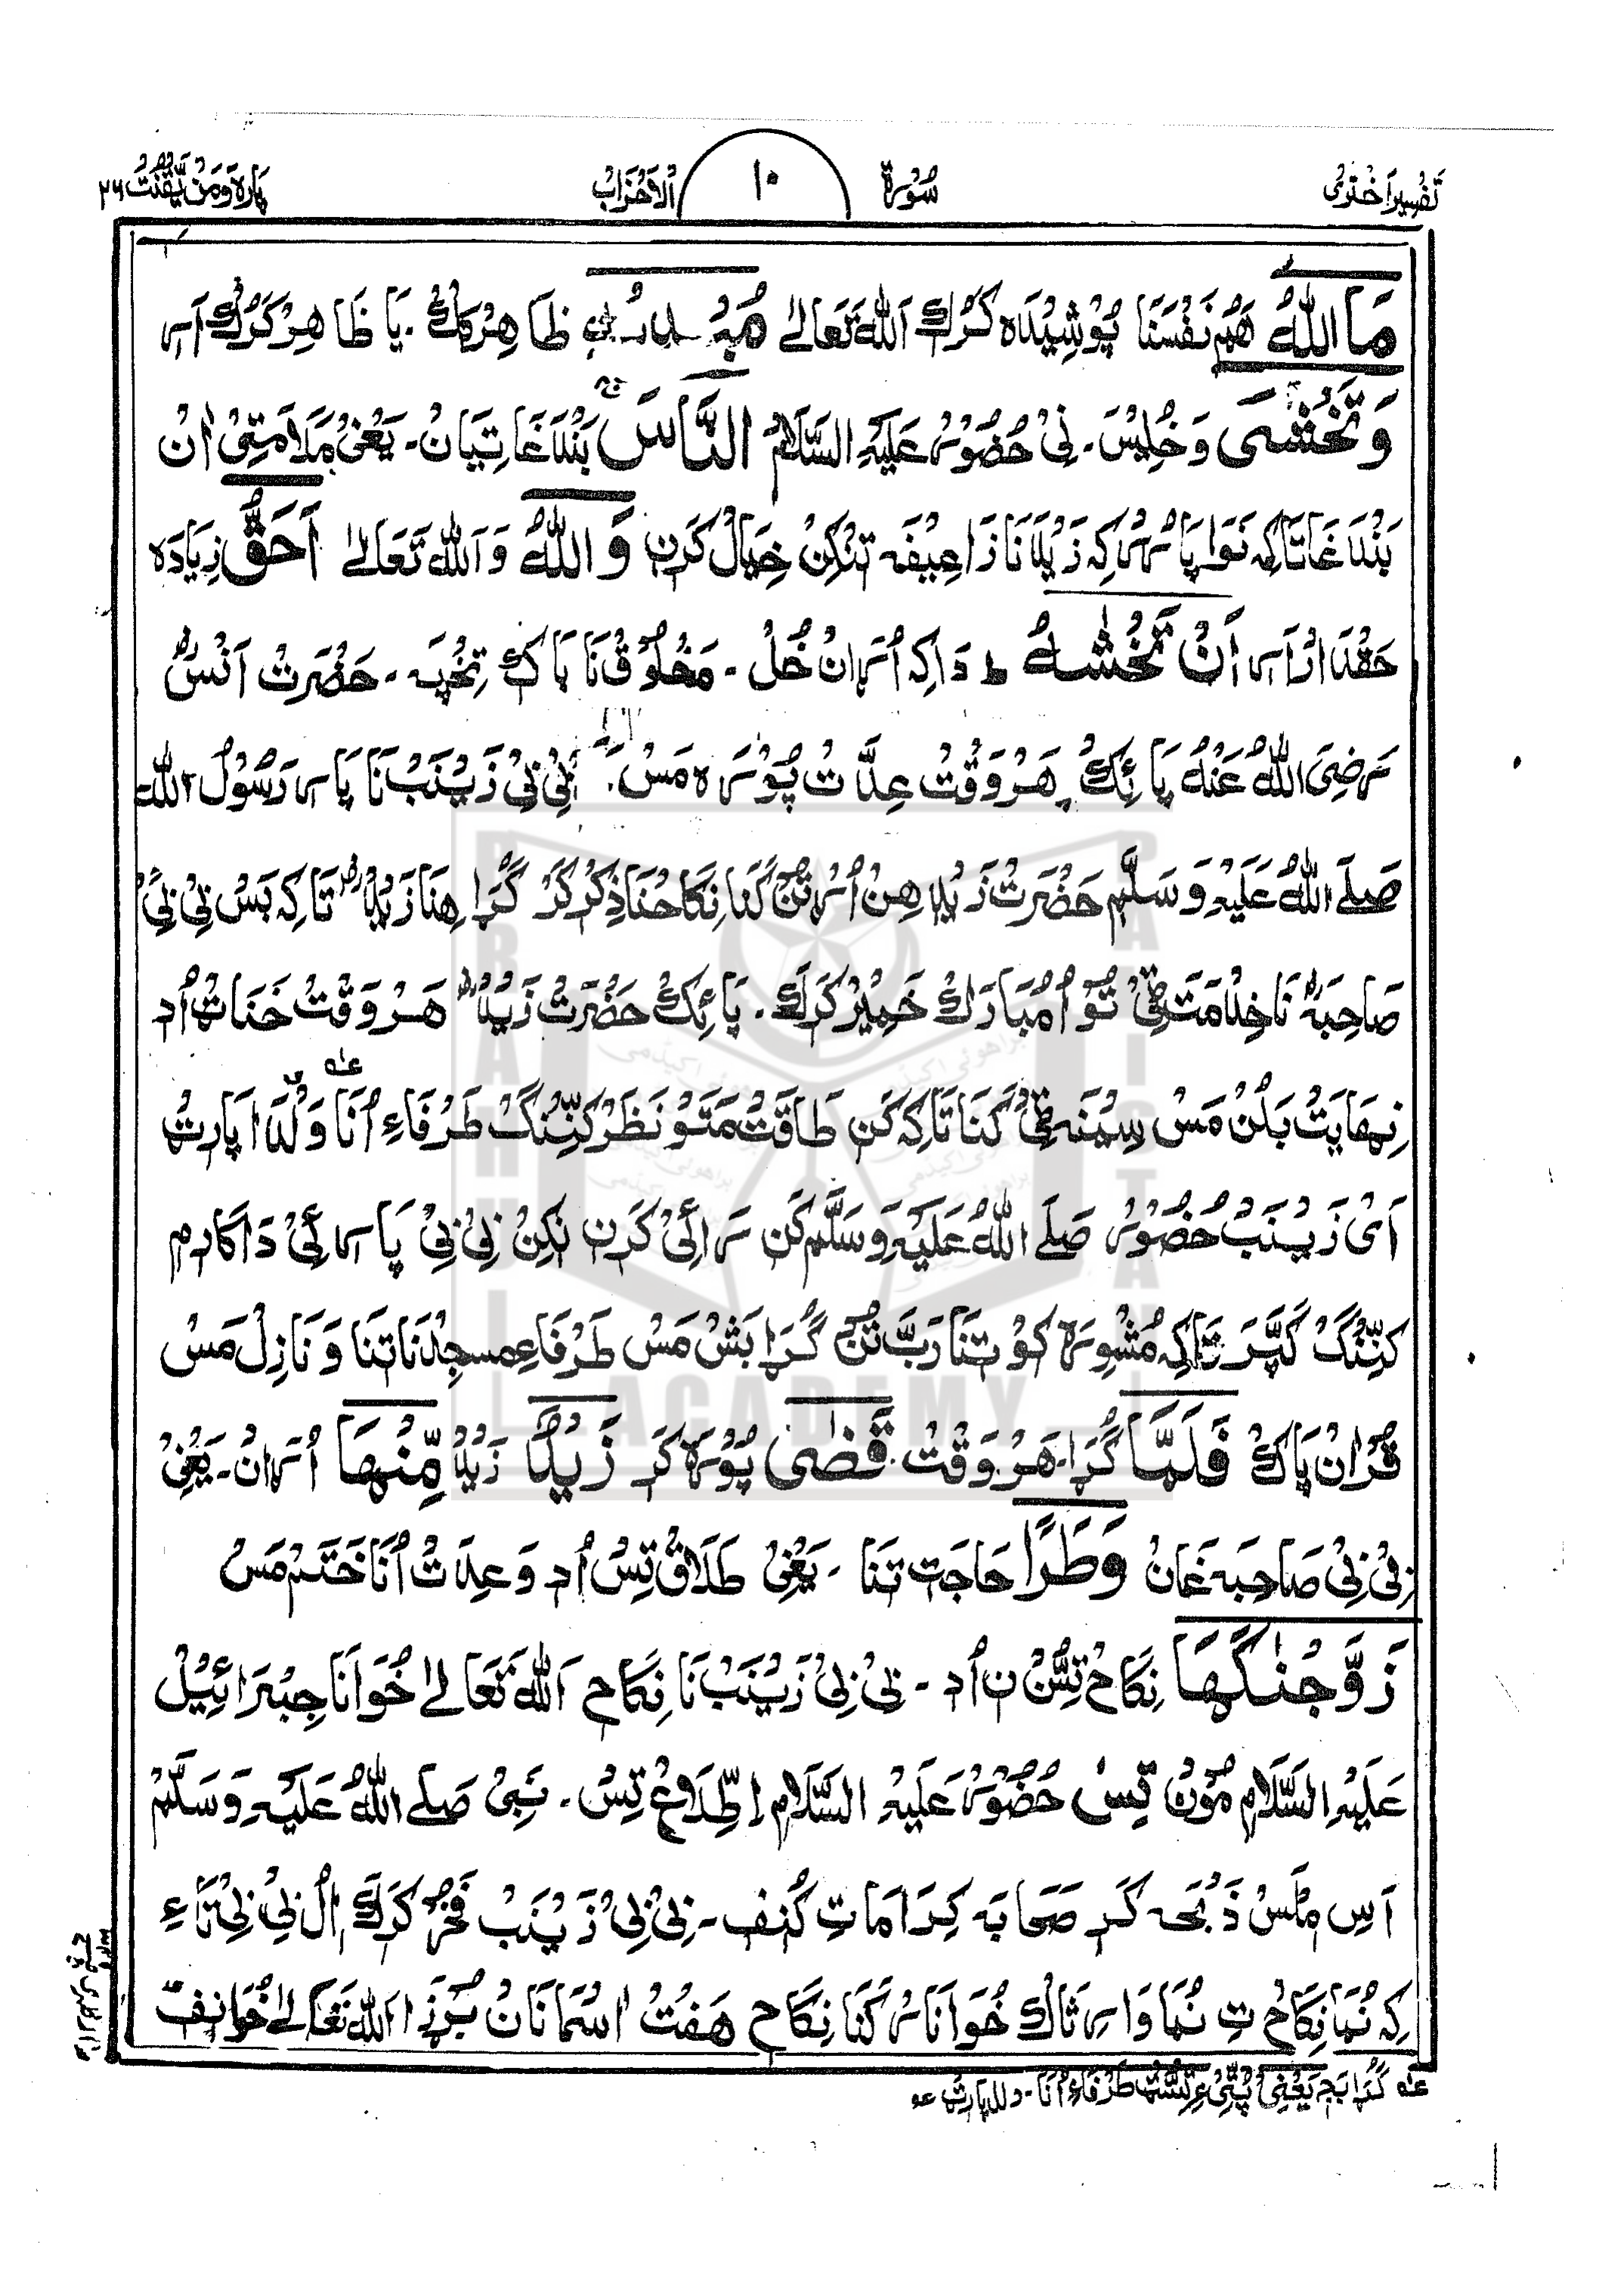 تَفْسِیْر اَخْتَرِیْ سُوْرَۃ ١٠ اَلْاَحْزَابْ پَارَہ وَمَنْ یَّقْنُتْ ٢٢
مَا اللّٰهُ هَمُ نَفْسَنَا پُوْشِیْدَہ کَرُکْ اَللّٰه تَعَالٰے ظَاهِرْکُکْ ۔ یَا ظَاهِرْ کَرُکْ اَسِ
وَتَخْشَی وَخُلِیْسَ ۔ نِیْ حُضُوْرْ عَلَیْهِ السَّلَامُ النَّاسَ بَنْدَغَاتِیَانْ ۔ یَعْنِیْ مَلَامَتِیْ اَنْ
بَنْدَغَاتَا کِہ نَوَا پَارُرْ کِہ زَیْدْ نَا زَاعِیْفَہ تِنْکِنْ خِیَالْ کَرِنْ وَاللّٰهُ وَاَللّٰه تَعَالٰے اَحَقُّ زِیَادَہ
حَقْدَارْ اَسِ اَنْ تَخْشٰهُ ط دَاکِہ اُسْ اَنْ خُلْ ۔ مَخْلُوْقْ نَا بَاکْ تِخْپَ ۔ حَضْرَتْ اَنَسْ
رَضِیَ اللّٰهُ عَنْهُ پَائِکْ هَرْوَقْتْ عِدَّتْ پُوْرَہ مَسْ ۔ بِیْ بِیْ زَیْنَبْ نَا پَارَ رَسُوْلُ اللّٰه
صَلَے اللّٰهُ عَلَیْهِ وَسَلَّم حَضْرَتْ زَیْد هِنْ اُسْ تُنْ کَنَا نِکَاحْنَا ذِکْرْ کَرْ گُڑَا هِنَا زَیْدْ تَا کِہ بَسْ بِیْ بِیْ
صَاحِبَہ نَا خِدْمَتَ ٹِیْ تُوْ اُمُبَارَکْ خَمِیْر کَرَکْ ۔ پَائِکْ حَضْرَتْ زَیْدْ هَرْوَقْتْ خَنَاتْ اُد
نِهَایَتْ بَلُنْ مَسْ سِیْنَہ ٹِیْ کَنَا تَاکِہ کَنِ طَاقَتْ مَتَوْ نَظَرْ کَنِّنْگْ طَرْفَاءِ اُنَا وَلَدَ اپَارِتْ
اَیْ زَیْنَبْ حُضُوْرْ صَلَے اللّٰهُ عَلَیْهِ وَسَلَّم کَنِ رَائِیْ کَرِنْ نِکِنْ بِیْ بِیْ پَارِ ئِیْ دَاکَارِمْ
کَنِّنْگْ کَپَّرَ تَاکِہ مُشْوِرَہ کَوْ تِنَا رَبَّ تُنْ گُڑَا بَشْ مَسْ طَرْفَاءِ مسجِدْنَا تِنَا وَ نَازِلْ مَسْ
قُرْاٰنْ پَاکْ فَلَمَّا گُڑَا هَرْوَقْتْ قَضٰی پُوْرَہ کَرِ زَیْدٌ زَیْدْ مِّنْهَا اُسْ اَنْ ۔ یَعْنِیْ
بِیْ بِیْ صَاحِبَہ غَانْ وَطَرًا حَاجَتِ تِنَا ۔ یَعْنِیْ طَلَاقْ تِسْ اُدِ وَ عِدَتْ اُنَا خَتَمْ مَسْ
زَوَّجْنٰکَهَا نِکَاحْ تِسُّنْ نِ اُدِ ۔ بِیْ بِیْ زَیْنَبْ نَا نِکَاحِ اَللّٰه تَعَالٰے خُوَانَا جِبْرَائِیْلْ
عَلَیْهِ السَّلَام مُوْنْ تِسْ حُضُوْرْ عَلَیْهِ السَّلَام اِطِّلَاعْ تِسْ ۔ نَبِیْ صَلَے اللّٰهُ عَلَیْهِ وَسَلَّمْ
اَسِ مِلْسْ ذَبْحَہ کَرِ صَحَابَہ کِرَامَاتِ کُنِفِ ۔ بِیْ بِیْ زَیْنَبْ فَخْرْ کَرَکْ اُلْ بِیْ بِیْ تَاءِ
کِہ نُمَا نِکَاحْ تِ نُمَا وَارِثَاکْ خُوَانَارْ کَنَا نِکَاحِ هَفْتْ اٰسْمَانَانْ بُرْزِ اَللّٰه تَعَالٰے خُوَانِفْ
عه گُڑَا بَجْ یَعْنِیْ پُٹِّیْءِ تِسَّٹْ طَرْفَاءِ اُنَا ۔ وَلَد پَارِتْ عه